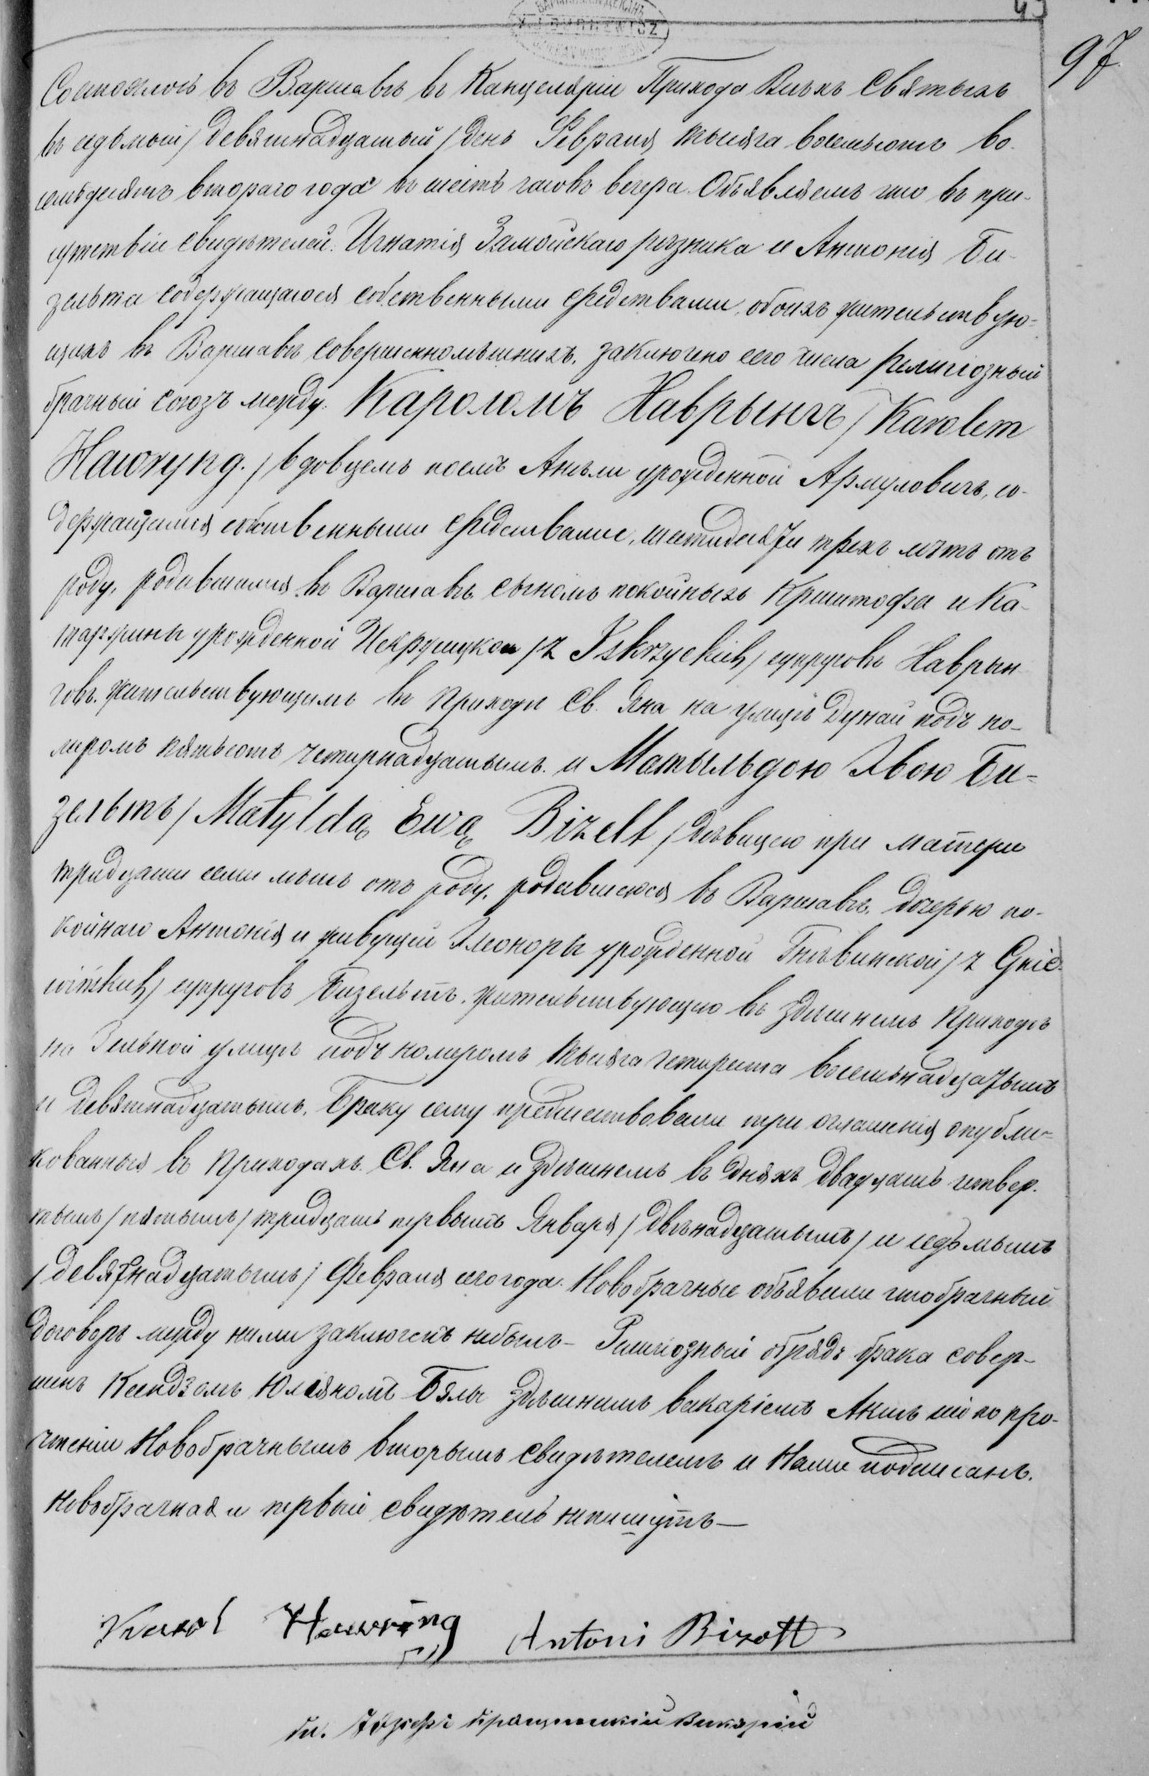 43
97
Состоялось въ Варшавѣ въ Канцеляріи Прихода Всѣхъ Святыхъ
въ седьмый / девятнадцатый / день Февраля тысяча восемьсотъ во-
семьдесятъ втораго года въ шесть часовъ вечера. Объявляемъ что въ при-
сутствіи свидѣтелей. Игнатія Замойскаго рѣзника и Антонія Би-
зельта содержащагося собственными средствами, обоихъ жительствую-
щихъ въ Варшавѣ совершеннолѣтнихъ, заключено сего числа религіозный
брачный союзъ между. Кароломъ Наврынгъ / Karolem
Hawryng. / вдовцемъ послѣ Анѣли урожденной Армуловичъ, со-
держащимся собственными средствами, шестидесяти трехъ лѣтъ отъ
роду, родившимся въ Варшавѣ сыномъ покойныхъ Криштофа и Ка-
таржины урожденной Искржицкой / z Iskrzyckich / супруговъ Наврын-
говъ. жительствующимъ въ Приходѣ Св. Яна на улицѣ Дунай подъ но-
меромъ пятьсотъ четырнадцатымъ. и Матыльдою Эвою Би-
зельтъ / Matyldą Ewą Bizelt / дѣвицею при матери
тридцати семи лѣтъ отъ роду, родившеюся въ Варшавѣ, дочерью по-
койнаго Антонія и живущей Элеоноры урожденной Гнѣвинской / z Gnie-
wińskich / супруговъ Бизельтъ, жительствующею въ здѣшнемъ Приходѣ
на Зельной улицѣ подъ номеромъ тысяча четыреста восемьнадцатымъ
и девятнадцатымъ. Браку сему предшествовали три оглашенія опубли-
кованныя въ Приходахъ Св. Яна и здѣшнемъ въ дняхъ двадцать четвер-
тымъ / пятымъ / тридцать первымъ Января / двѣнадцатымъ / и седьмымъ
/ девятнадцатымъ / Февраля сего года. Новобрачные объявили что брачный
договоръ между ними заключенъ небылъ – Религіозный обрядъ брака совер-
шенъ Ксендзомъ Юліяномъ Бялы здѣшнимъ викаріемъ Актъ сей по про-
чтеніи Новобрачнымъ вторымъ свидѣтелемъ и Нами подписанъ.
Новобрачная и первый свидѣтель непишутъ –
Karol Hawring Antoni Bizelt
Кс. Іозефъ Викарій